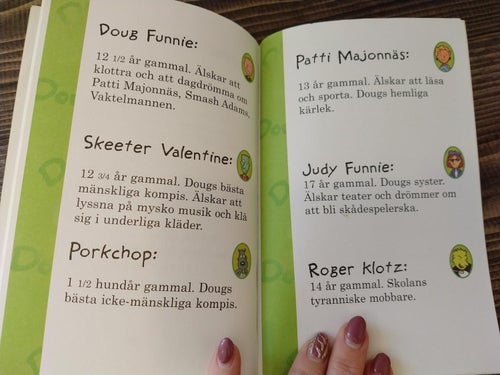 Doug Funnie:
12 1/2 år gammal. Älskar att
klottra och att dagdrömma om
Patti Majonnäs, Smash Adams,
Vaktelmannen.
Skeeter Valentine:
12 3/4 år gammal. Dougs bästa
mänskliga kompis. Älskar att
lyssna på mysko musik och klä
sig i underliga kläder.
Porkchop:
1 1/2 hundår gammal. Dougs
bästa icke-mänskliga kompis.
Patti Majonnäs:
13 år gammal. Älskar att läsa
och sporta. Dougs hemliga
kärlek.
Judy Funnie:
17 år gammal. Dougs syster.
Älskar teater och drömmer om
att bli skådespelerska.
Roger Klotz:
14 år gammal. Skolans
tyranniske mobbare.